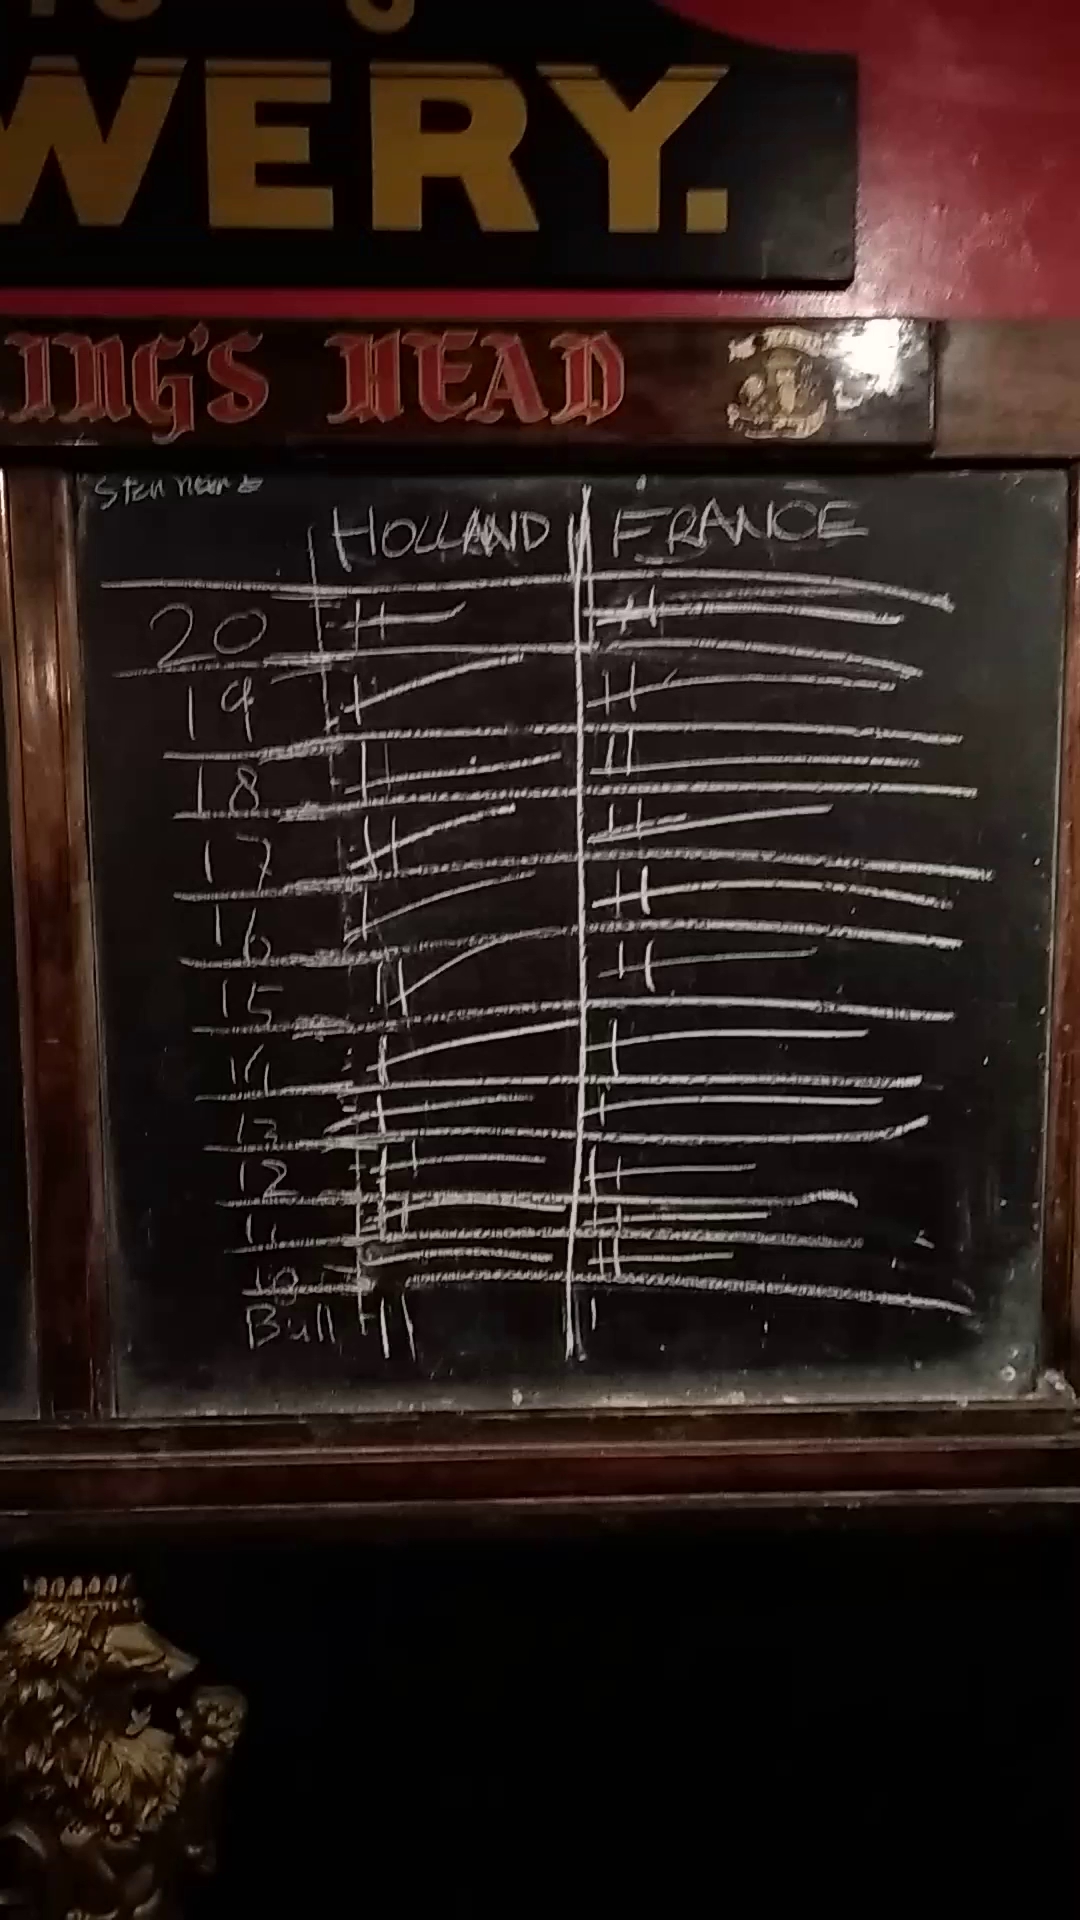 WERY.
ING'S HEAD
HOLLAND FRANCE
20
19
18
17
16
15
14
13
12
11
10
Bull